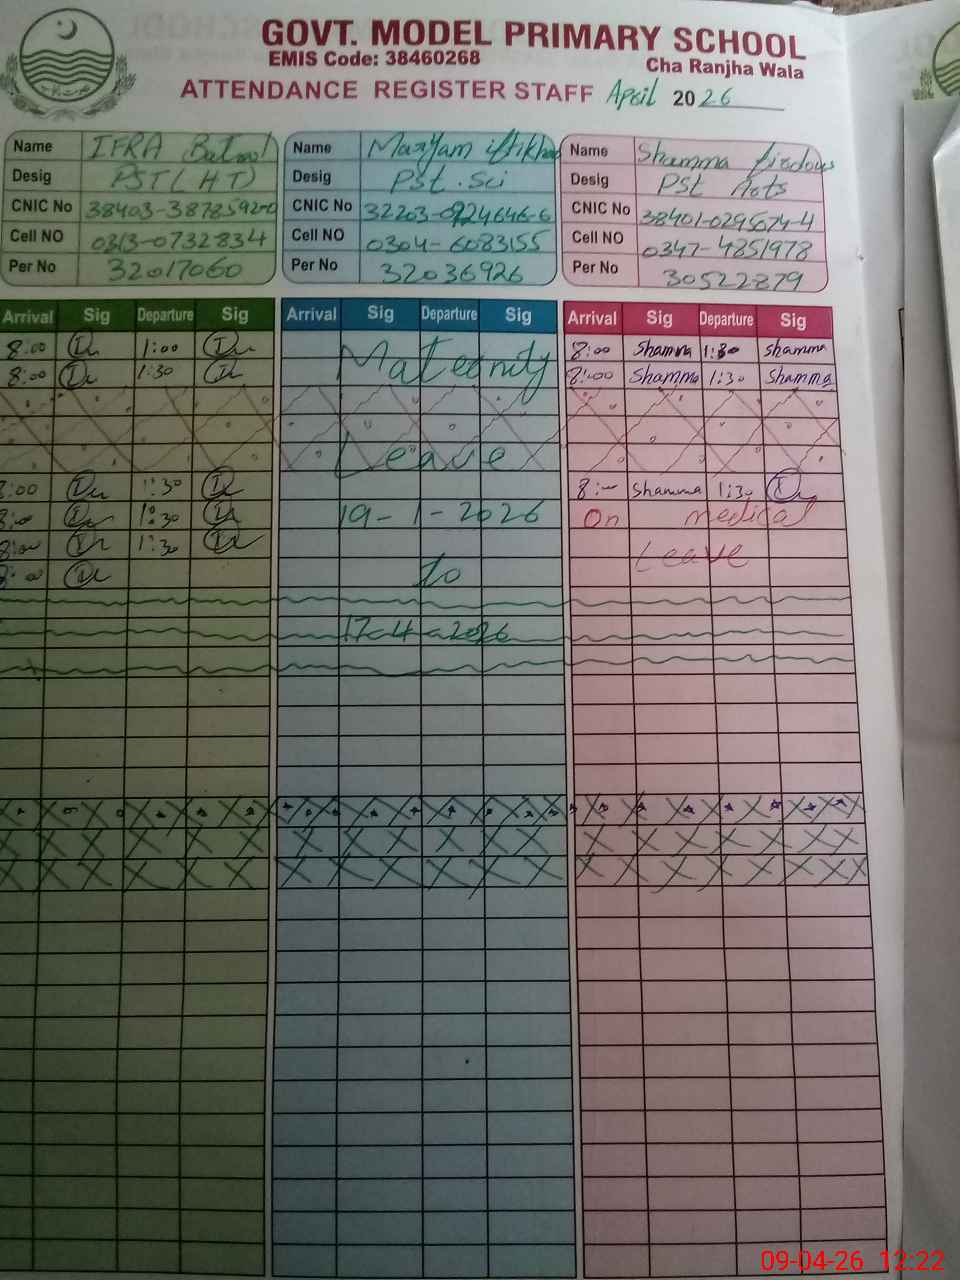 GOVT. MODEL PRIMARY SCHOOL
EMIS Code: 38460268 Cha Ranjha Wala
ATTENDANCE REGISTER STAFF April 2026
Name IFRA Batool Name Maryam iftikhar Name Shamma firdous
Desig PST (HT) Desig Pst. Sci Desig Pst Arts
CNIC No 38403-3878592-0 CNIC No 32203-0924646-6 CNIC No 38401-0295074-4
Cell NO 0313-0732834 Cell NO 0304-6083155 Cell NO 0347-4851978
Per No 32017060 Per No 32036926 Per No 30522879
Arrival Sig Departure Sig Arrival Sig Departure Sig Arrival Sig Departure Sig
8:00 1:00 Maternity 8:00 Shamma 1:30 Shamma
8:00 1:30 8:00 Shamma 1:30 Shamma
Leave
8:00 1:30 8:- Shamma 1:30
8:00 1:30 19-1-2026 On medical
8:00 1:30 Leave
8:00 To
17-4-2026
09-04-26 12:22